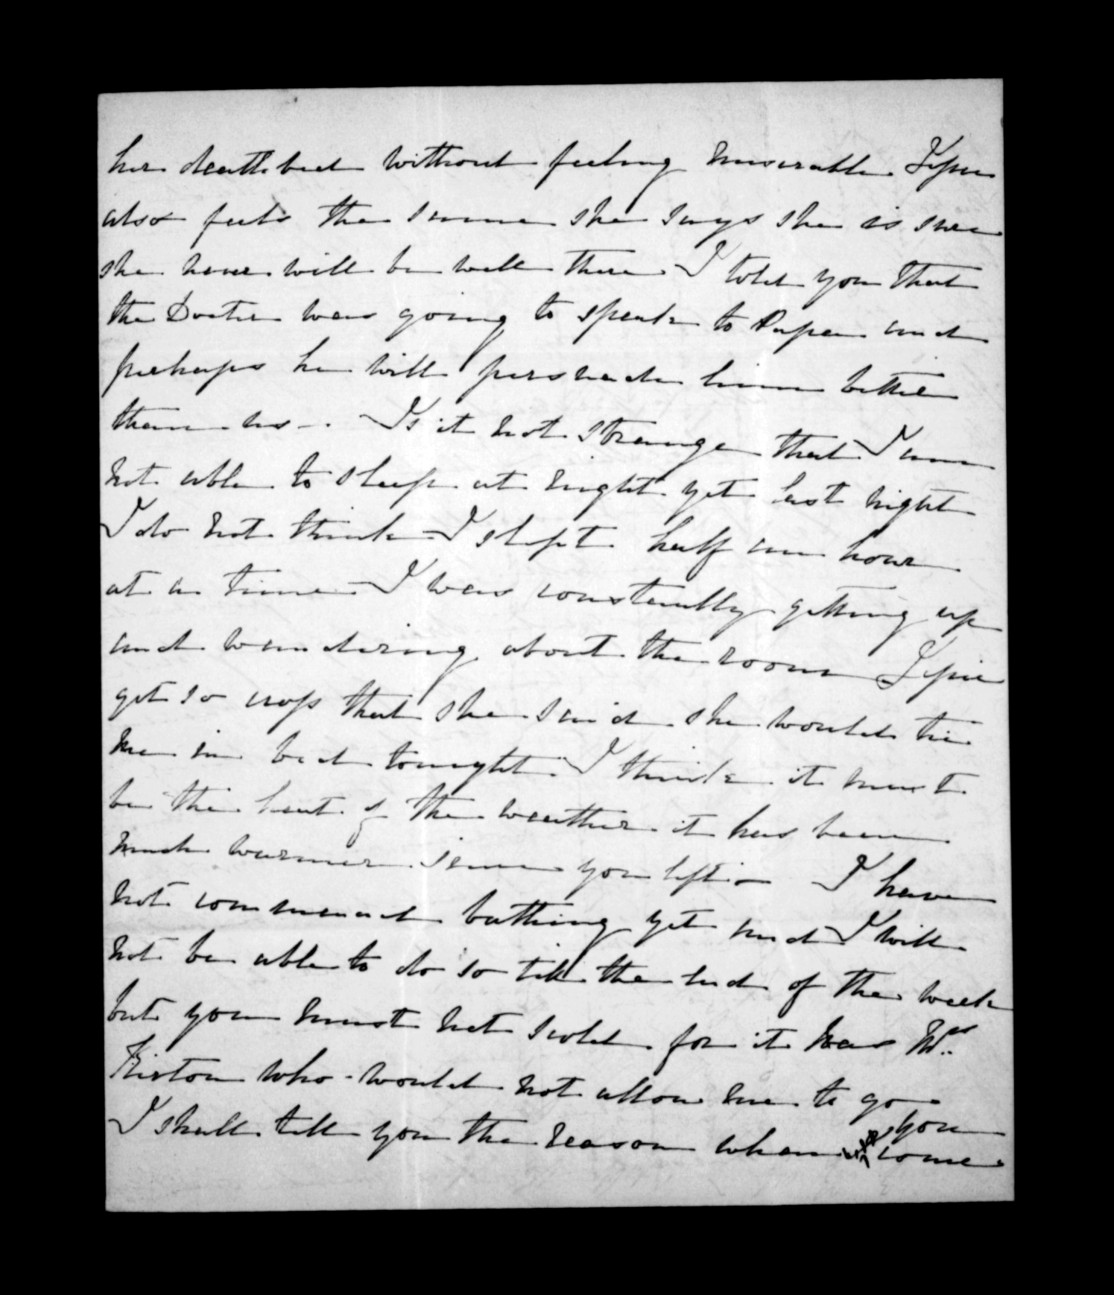 her deathbed without feeling miserable. Tipsie
also feels the same she says she is sure
she never will be well there. I told you that
the Doctor was going to speak to Papa and
perhaps he will persuade him better
than us -. Is it not strange that I am
not able to sleep at night yet last night
I do not think I slept half an hour
at a time I was constantly getting up
and wandering about the room
got so cross that she said she would tie
me in bed tonight. I think it must
be the heat of the weather it has been
much warmer since you left - I have
not commenced bathing yet and I will
not be able to do so till the end of the week
but you must not scold for it was Mrs.
who would not allow me to go
I shall tell you the reason when you come